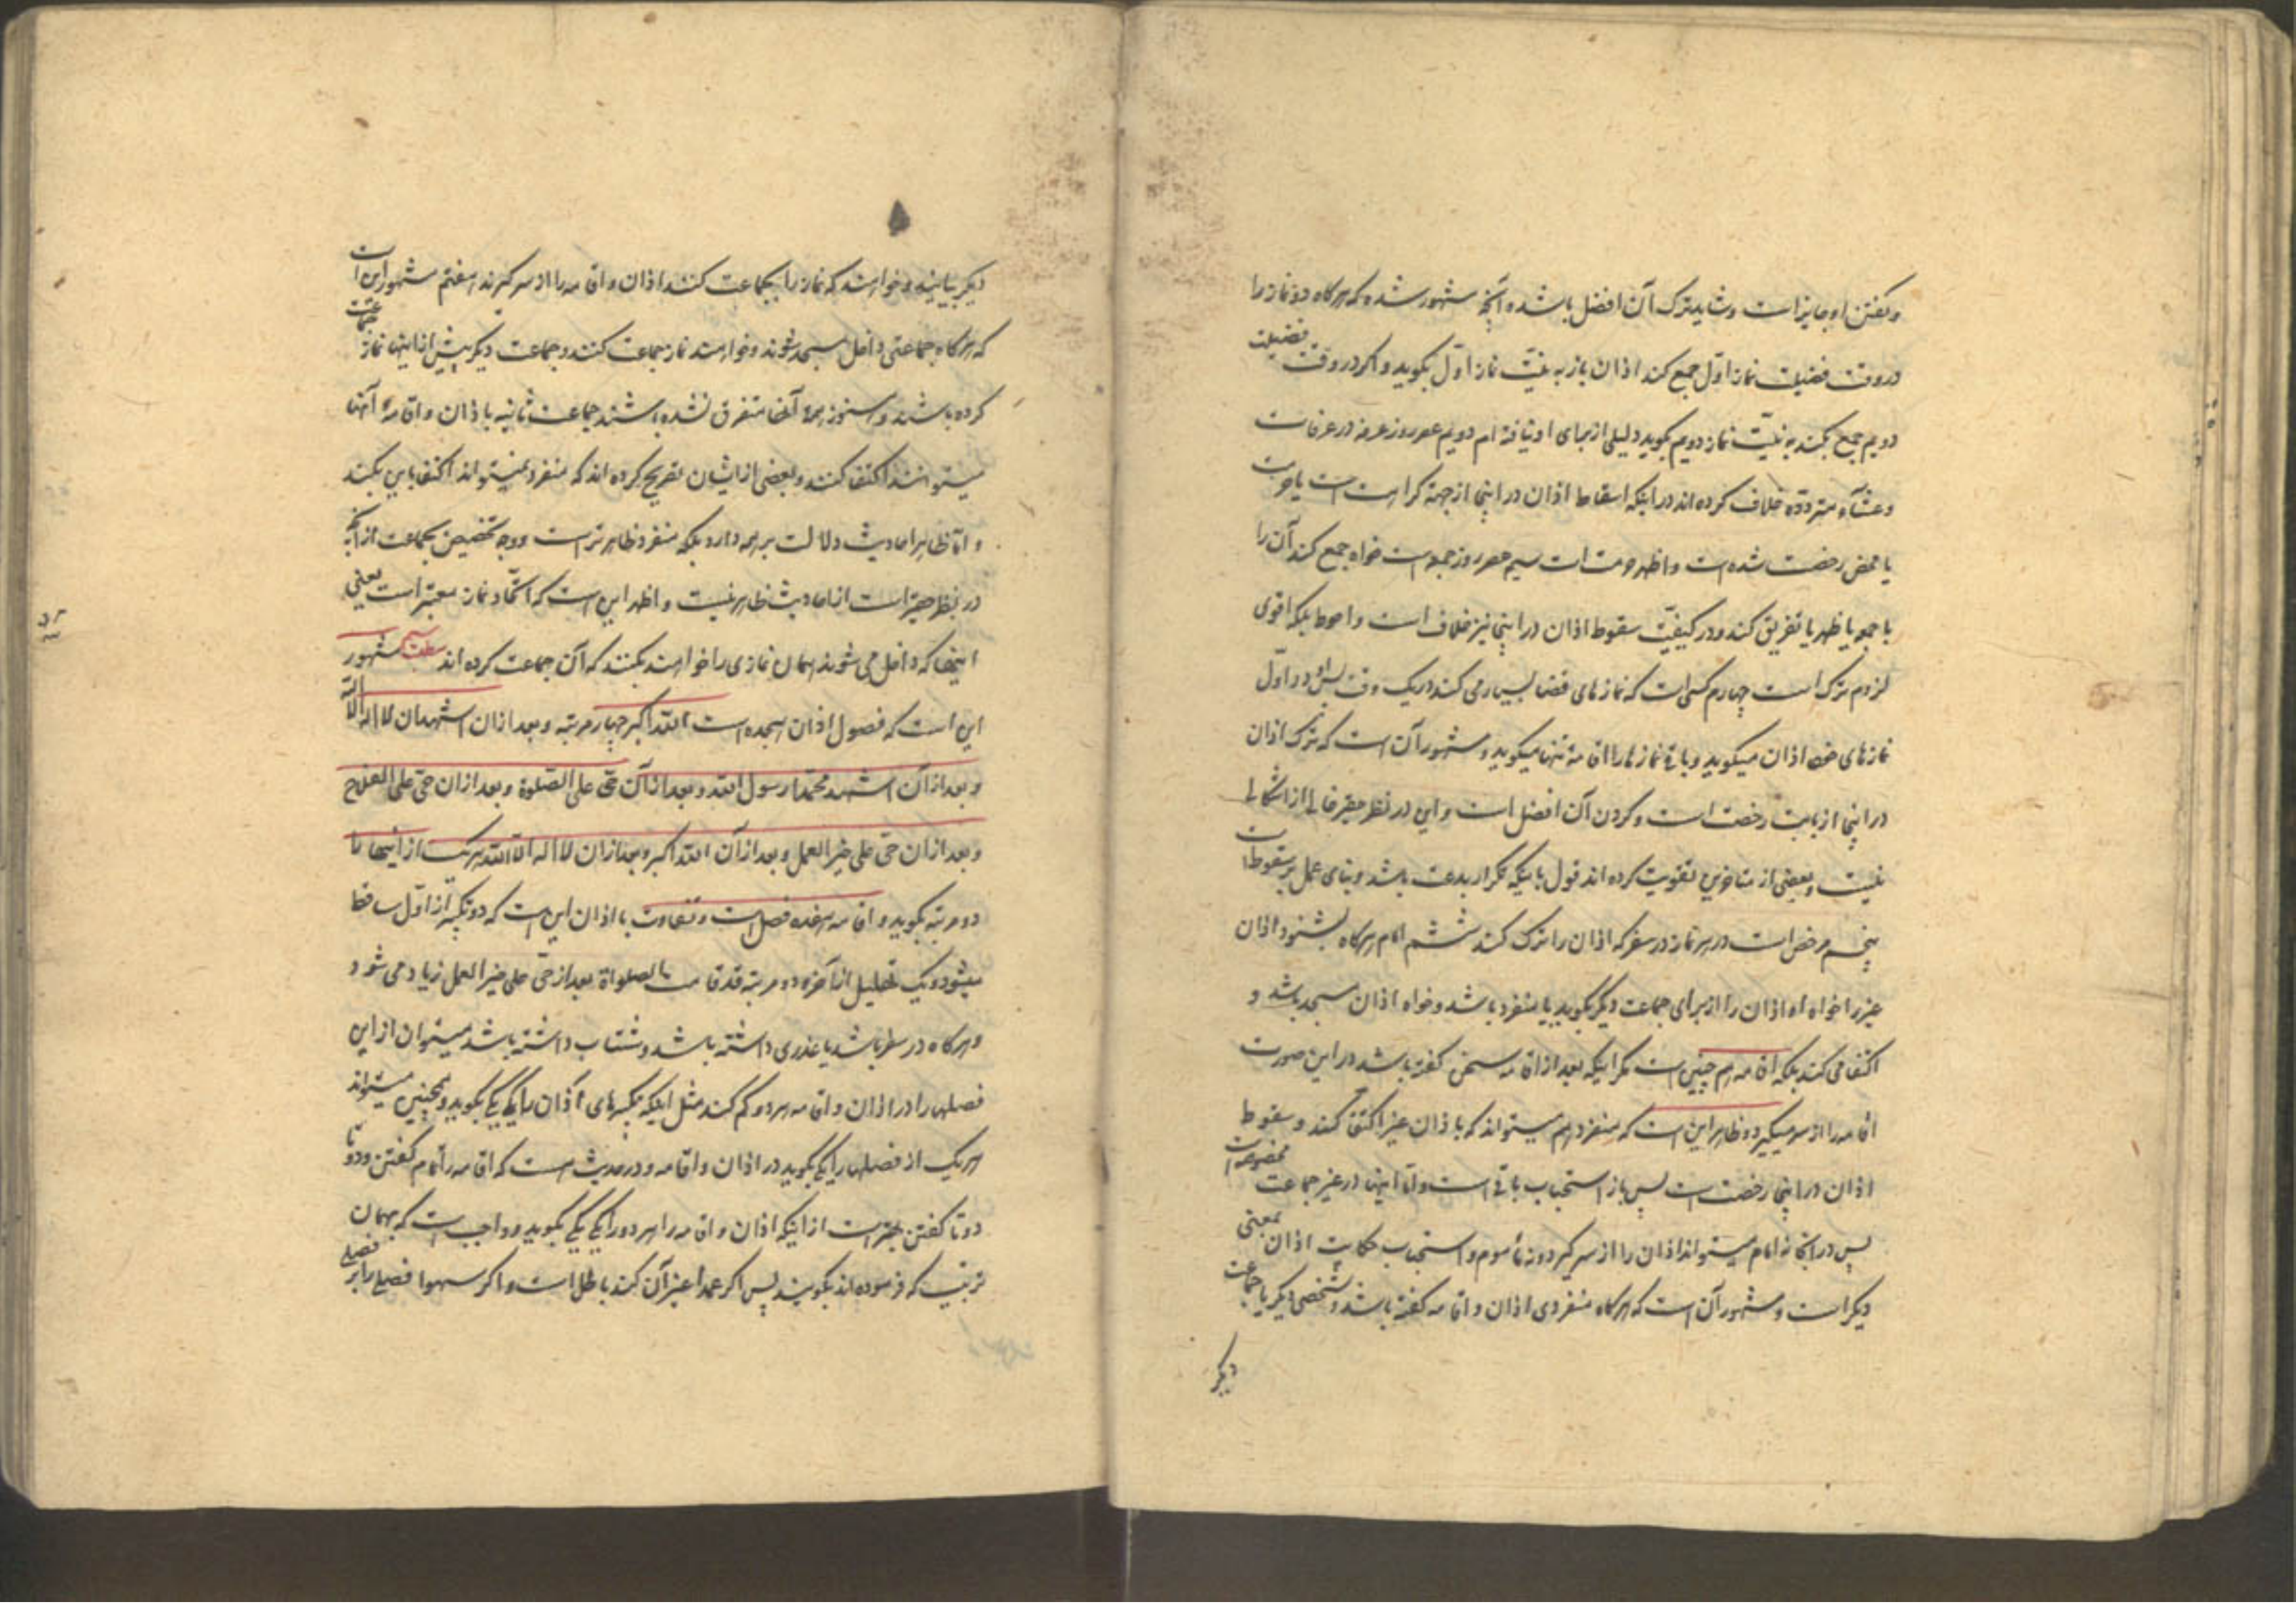 و گفتن او جایز است و شاید ترک آن افضل باشد و آنچه مشهور شده که هرگاه دو نماز را
در وقت فضیلت نماز اوّل جمع کند اذان باز به نیّت نماز اوّل بگوید و اگر در وقت فضیلت
دویم جمع بکند به نیّت نماز دویم بگوید دلیلی از برای او نیافته ام دویم عصر روز عرفه در عرفات
و عشآء مزدلفه خلاف کرده اند در اینکه اسقاط اذان در اینجا از جهة کراهت است یا حرمت
یا محض رخصت شده است و اظهر حرمت است سیم عصر روز جمعه است خواه جمع کند آن را
با جمعه یا ظهر یا تفریق کند و در کیفیّت سقوط اذان در اینجا نیز خلاف است و احوط بلکه اقوی
لزوم ترک است چهارم کسی است که نمازهای قضا بسیار می کند در یک وقت پس او در اوّل
نمازهای خود اذان میگوید و باقی نمازها را اقامه تنها میگوید و مشهور آن است که ترک اذان
در اینجا از بابت رخصت است و کردن آن افضل است و این در نظر حقیر خالی از اشکالی
نیست و بعضی از متاخرین تقویت کرده اند قول باینکه تکرار بدعت باشد و بنای عمل بر سقوط است
پنجم مرخص است در هر نماز در سفر که اذان را ترک کند ششم امام هرگاه بشنود اذان
غیر را خواه او اذان را از برای جماعت دیگر بگوید یا منفرد باشد و خواه اذان مسجد باشد و
اکتفا می کند بلکه اقامه هم چنین است مگر اینکه بعد از اقامه سخن گفته باشد در این صورت
اقامه را از سر میگیرد و ظاهر این است که منفرد هم میتواند که باذان غیر اکتفا کند و سقوط
اذان در اینجا رخصت است پس باز استحباب باقی است و امّا اینها در غیر جماعت مخصوصه است
پس در آنجا نه امام میتواند اذان را از سر گیرد و نه مأموم و استحباب حکایت اذان بمعنی
دیگر است و مشهور آن است که هرگاه منفردی اذان و اقامه گفته باشد و شخصی دیگر یا جماعت
دیگر
دیگر بیایند و خواهند که نماز را بجماعت کنند اذان و اقامه را از سر گیرند هفتم مشهور این است
که هرگاه جماعتی داخل مسجد شوند و خواهند نماز جماعت کنند و جماعت دیگر پیش از اینها نماز جماعت
کرده باشند و هنوز همهٔ آنها متفرق نشده باشند جماعت ثانیه باذان و اقامهٔ آنها
میتوانند اکتفا کنند و بعضی از ایشان تصریح کرده اند که منفرد نمیتواند اکتفا باین بکند
و امّا ظاهر احادیث دلالت بر همه دارد بلکه منفرد ظاهرتر است و وجه تخصیص بجماعت از آنچه
در نظر حقیر است از احادیث ظاهر نیست و اظهر این است که اتّحاد نماز معتبر است یعنی
اینها که داخل می شوند همان نمازی را خواهند بکنند که آن جماعت کرده اند مشهور
این است که فصول اذان هیجده است الله اکبر چهار مرتبه و بعد از ان اشهد ان لا اله الا الله
و بعد از آن اشهد محمّدا رسول الله و بعد از آن حیّ علی الصّلوة و بعد از ان حیّ علی الفلاح
و بعد از ان حیّ علی خیر العمل و بعد از آن الله اکبر و بعد از ان لا اله الا الله هر یک از اینها را
دو مرتبه بگوید و اقامه هفده فصل است و تفاوت با اذان این است که دو تکبیر از اوّل ساقط
میشود و یک تهلیل از آخر و دو مرتبه قد قامت الصلواة بعد از حیّ علی خیر العمل زیاد می شود
و هرگاه در سفر باشد یا عذری داشته باشد و شتاب داشته باشد میتوان از این
فصلها را در اذان و اقامه هر دو کم کند مثل اینکه تکبیرهای اذان را یکی یکی بگوید و همچنین میتواند
هر یک از فصلها را یکی بگوید در اذان و اقامه و در حدیث است که اقامه را تمام گفتن و دو تا
دو تا گفتن بهتر است از اینکه اذان و اقامه را هر دو را یکی یکی بگوید و واجب است که بهمان
ترتیب که فرموده اند بگویند پس اگر عمداً غیر آن کند باطل است و اگر سهوا فصلی را بر فصلی